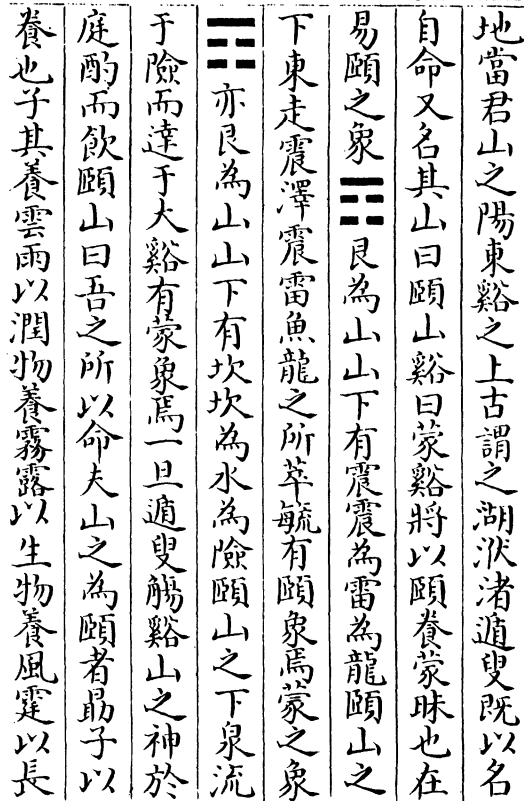 地當君山之陽東谿之上古謂之湖㳇渚遁叟既以名
自命又名其山曰頤山谿曰蒙谿將以頤養蒙昧也在
易頤之象䷚艮為山山下有震震為雷為龍頤山之
下東走震澤震雷魚龍之所萃毓有頤象焉蒙之象
䷃亦艮為山山下有坎坎為水為險頤山之下泉流
于險而達于大谿有蒙象焉一旦遁叟觴谿山之神於
庭酌而飲頤山曰吾之所以命夫山之為頤者勗子以
養也子其養雲雨以潤物養霧露以生物養風霆以長